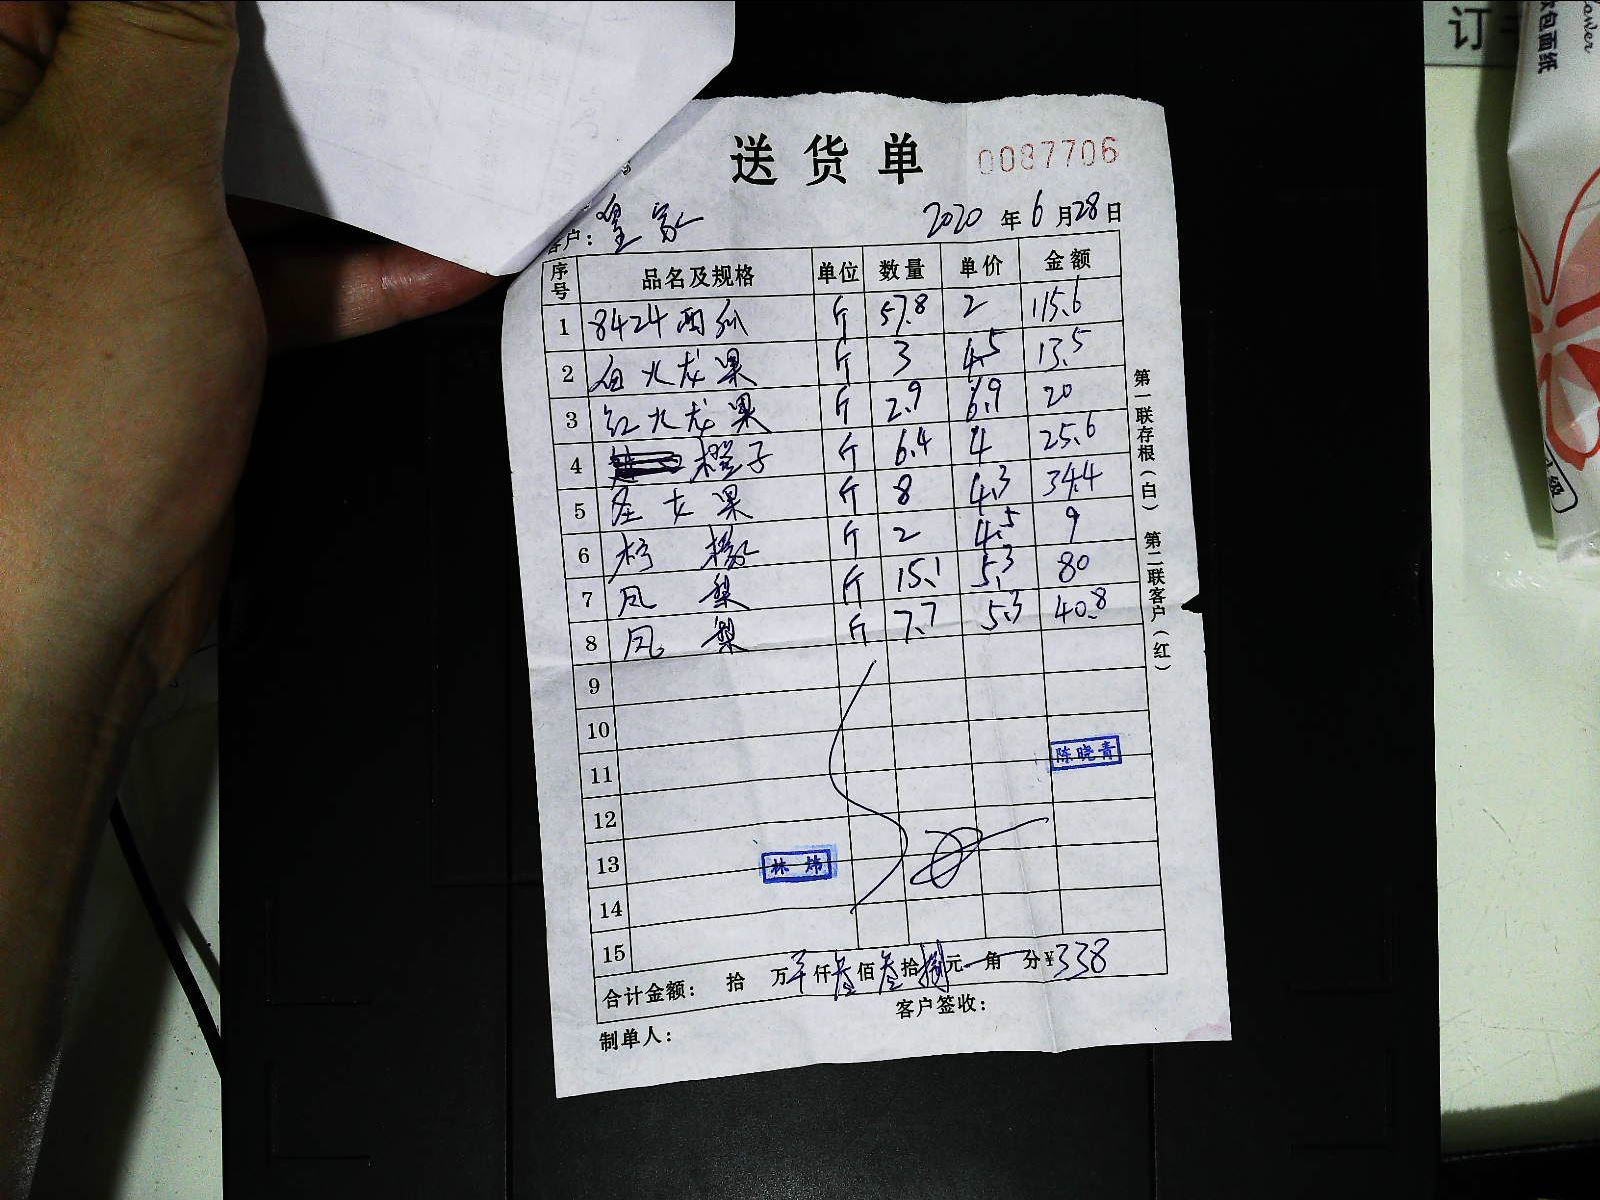 送货单 0087706
客户: 皇家 2020年6月28日
序号 品名及规格 单位 数量 单价 金额
1 8424西瓜 斤 57.8 2 115.6
2 白火龙果 斤 3 4.5 13.5
3 红火龙果 斤 2.9 6.9 20
4 橙子 斤 6.4 4 25.6
5 圣女果 斤 8 4.3 34.4
6 柠檬 斤 2 4.5 9
7 凤梨 斤 15.1 5.3 80
8 凤梨 斤 7.7 5.3 40.8
9
10
11
陈晓青
12
13
林炜
14
15
合计金额: 拾万仟叁佰叁拾捌元角分¥338
制单人: 客户签收:
第一联存根(白) 第二联客户(红)
订
软包面纸